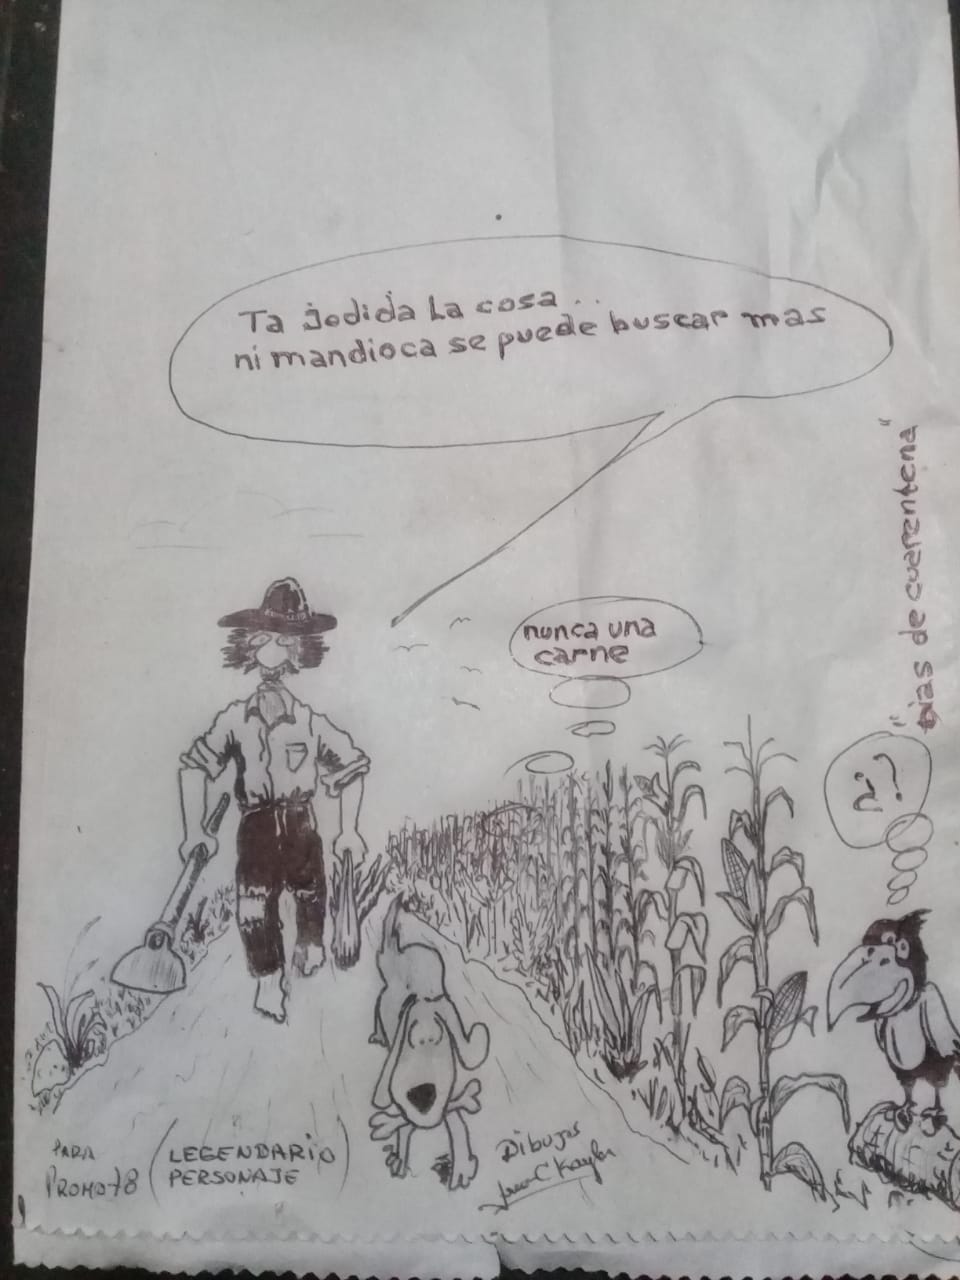 Ta jodida la cosa . .
ni mandioca se puede buscar mas
nunca una
carne
"Dias de cuarentena"
¿?
PARA
PROMO 78
(LEGENDARIO
PERSONAJE)
Dibujos